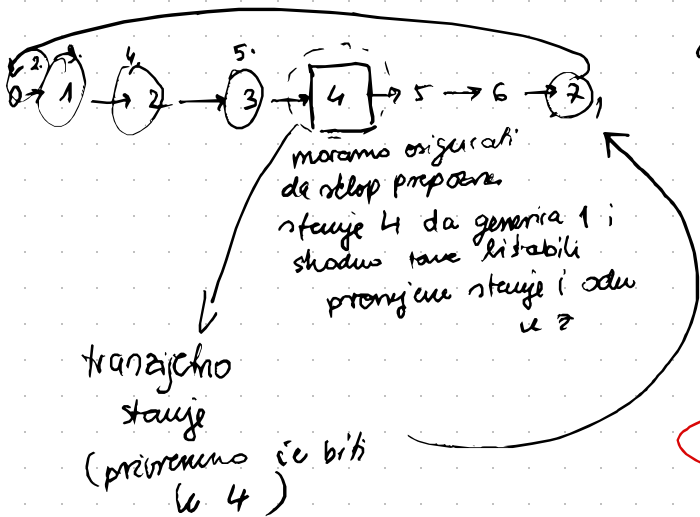 2. 3. 4. 5.
0 1 2 3 4 5 6 7
moramo osigurati
da sklop prepozna
stanje 4 da generira 1 i
shodno tome bistabili
promjene stanje i odu
u
tranzijetno
stanje
(privremeno će biti
u 4)